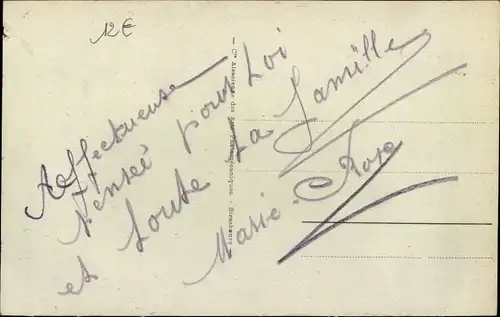 12€
Affectueuse
Pensée pour toi
et toute la famille
Marie-Rose
— Cie Alsacienne des Arts Photomécaniques. - Strasbourg